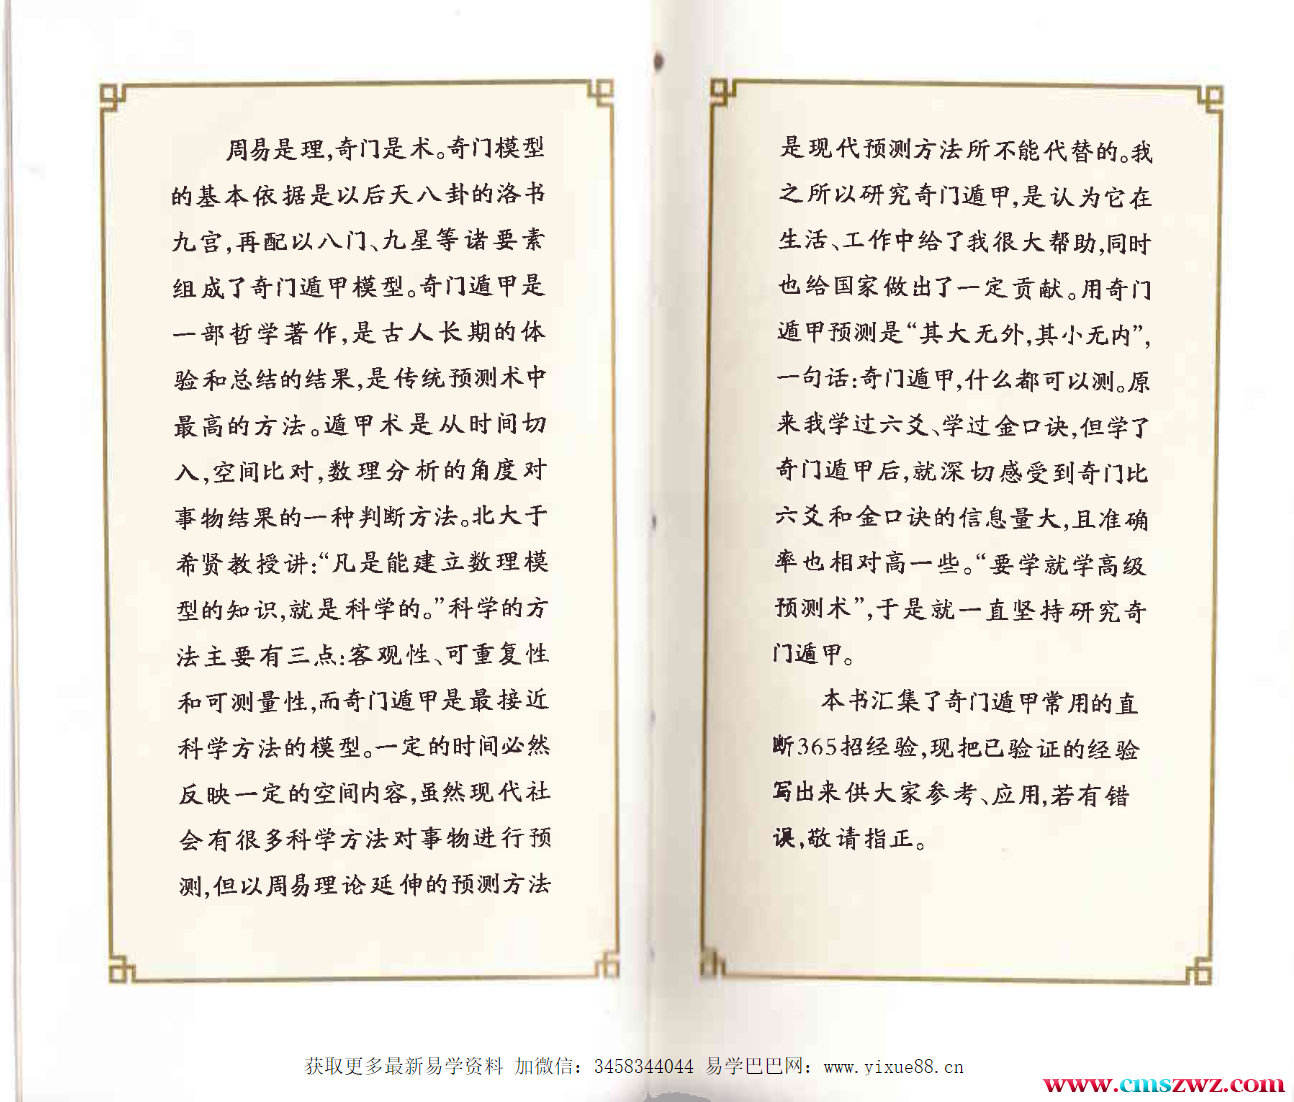 周易是理,奇门是术。奇门模型
的基本依据是以后天八卦的洛书
九宫,再配以八门、九星等诸要素
组成了奇门遁甲模型。奇门遁甲是
一部哲学著作,是古人长期的体
验和总结的结果,是传统预测术中
最高的方法。遁甲术是从时间切
入,空间比对,数理分析的角度对
事物结果的一种判断方法。北大于
希贤教授讲:“凡是能建立数理模
型的知识,就是科学的。”科学的方
法主要有三点:客观性、可重复性
和可测量性,而奇门遁甲是最接近
科学方法的模型。一定的时间必然
反映一定的空间内容,虽然现代社
会有很多科学方法对事物进行预
测,但以周易理论延伸的预测方法
是现代预测方法所不能代替的。我
之所以研究奇门遁甲,是认为它在
生活、工作中给了我很大帮助,同时
也给国家做出了一定贡献。用奇门
遁甲预测是“其大无外,其小无内”,
一句话:奇门遁甲,什么都可以测。原
来我学过六爻、学过金口诀,但学了
奇门遁甲后,就深切感受到奇门比
六爻和金口诀的信息量大,且准确
率也相对高一些。“要学就学高级
预测术”,于是就一直坚持研究奇
门遁甲。
本书汇集了奇门遁甲常用的直
断365招经验,现把已验证的经验
写出来供大家参考、应用,若有错
误,敬请指正。
获取更多最新易学资料 加微信：3458344044 易学巴巴网：www.yixue88.cn
www.cmszwz.com